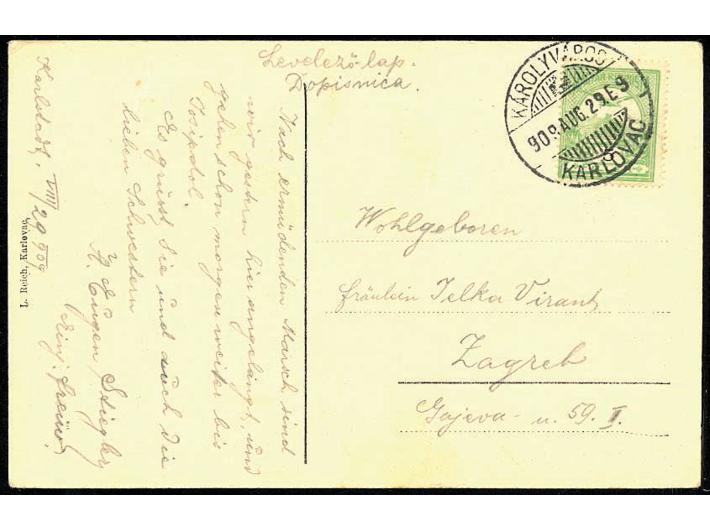 Levelező-lap.
Dopisnica.
KÁROLYVÁROS
909 AUG. 29. E 9
KARLOVAC
Karlstadt, VIII/29 909
Nach ermüdenden Marsch sind
wir gestern hier angelangt, und
gehen schon morgen weiter bis
Es grüsst Sie und auch die
lieben Schwestern
Eugen Stiegler
Einj. Freiw.
L. Reich, Karlovac
Wohlgeboren
Fräulein Jelka Virant
Zagreb
Gajeva - u. 59. I.